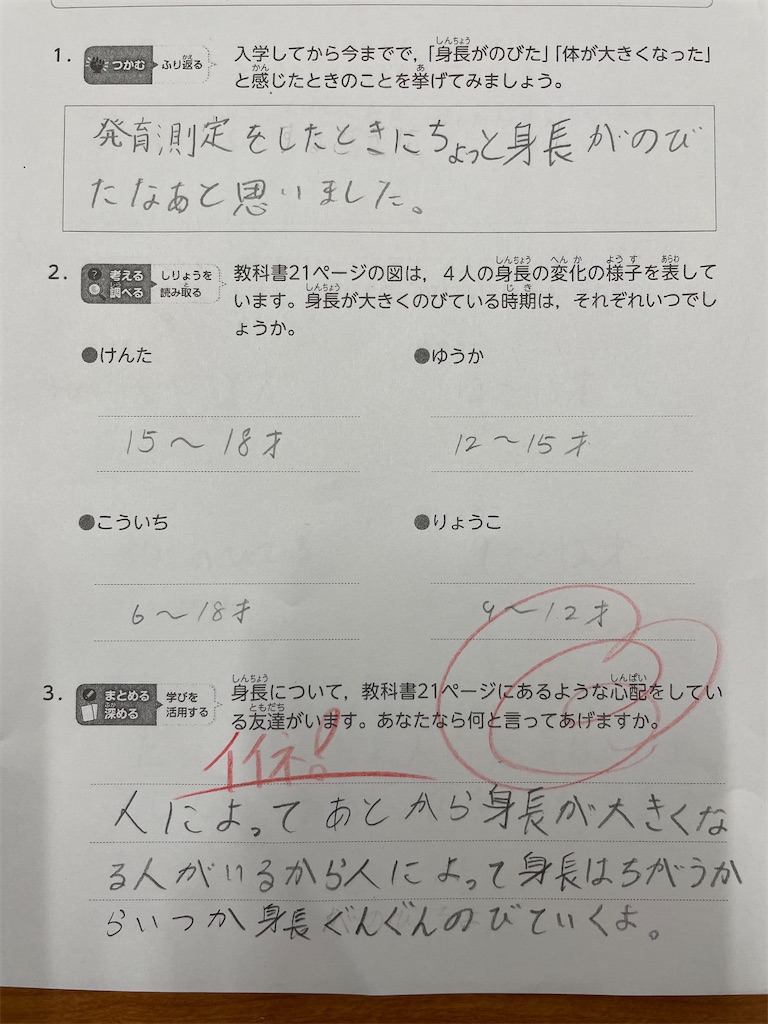 1. つかむ ふり返る 入学してから今までで，「身長がのびた」「体が大きくなった」
と感じたときのことを挙げてみましょう。
発育測定をしたときにちょっと身長がのび
たなあと思いました。
2. 考える 調べる しりょうを読み取る 教科書21ページの図は，4人の身長の変化の様子を表して
います。身長が大きくのびている時期は，それぞれいつでし
ょうか。
●けんた ●ゆうか
15〜18才 12〜15才
●こういち ●りょうこ
6〜18才 9〜12才
3. まとめる 深める 学びを活用する 身長について，教科書21ページにあるような心配をしてい
る友達がいます。あなたなら何と言ってあげますか。
イイネ!
人によってあとから身長が大きくな
る人がいるから人によって身長はちがうか
らいつか身長ぐんぐんのびていくよ。